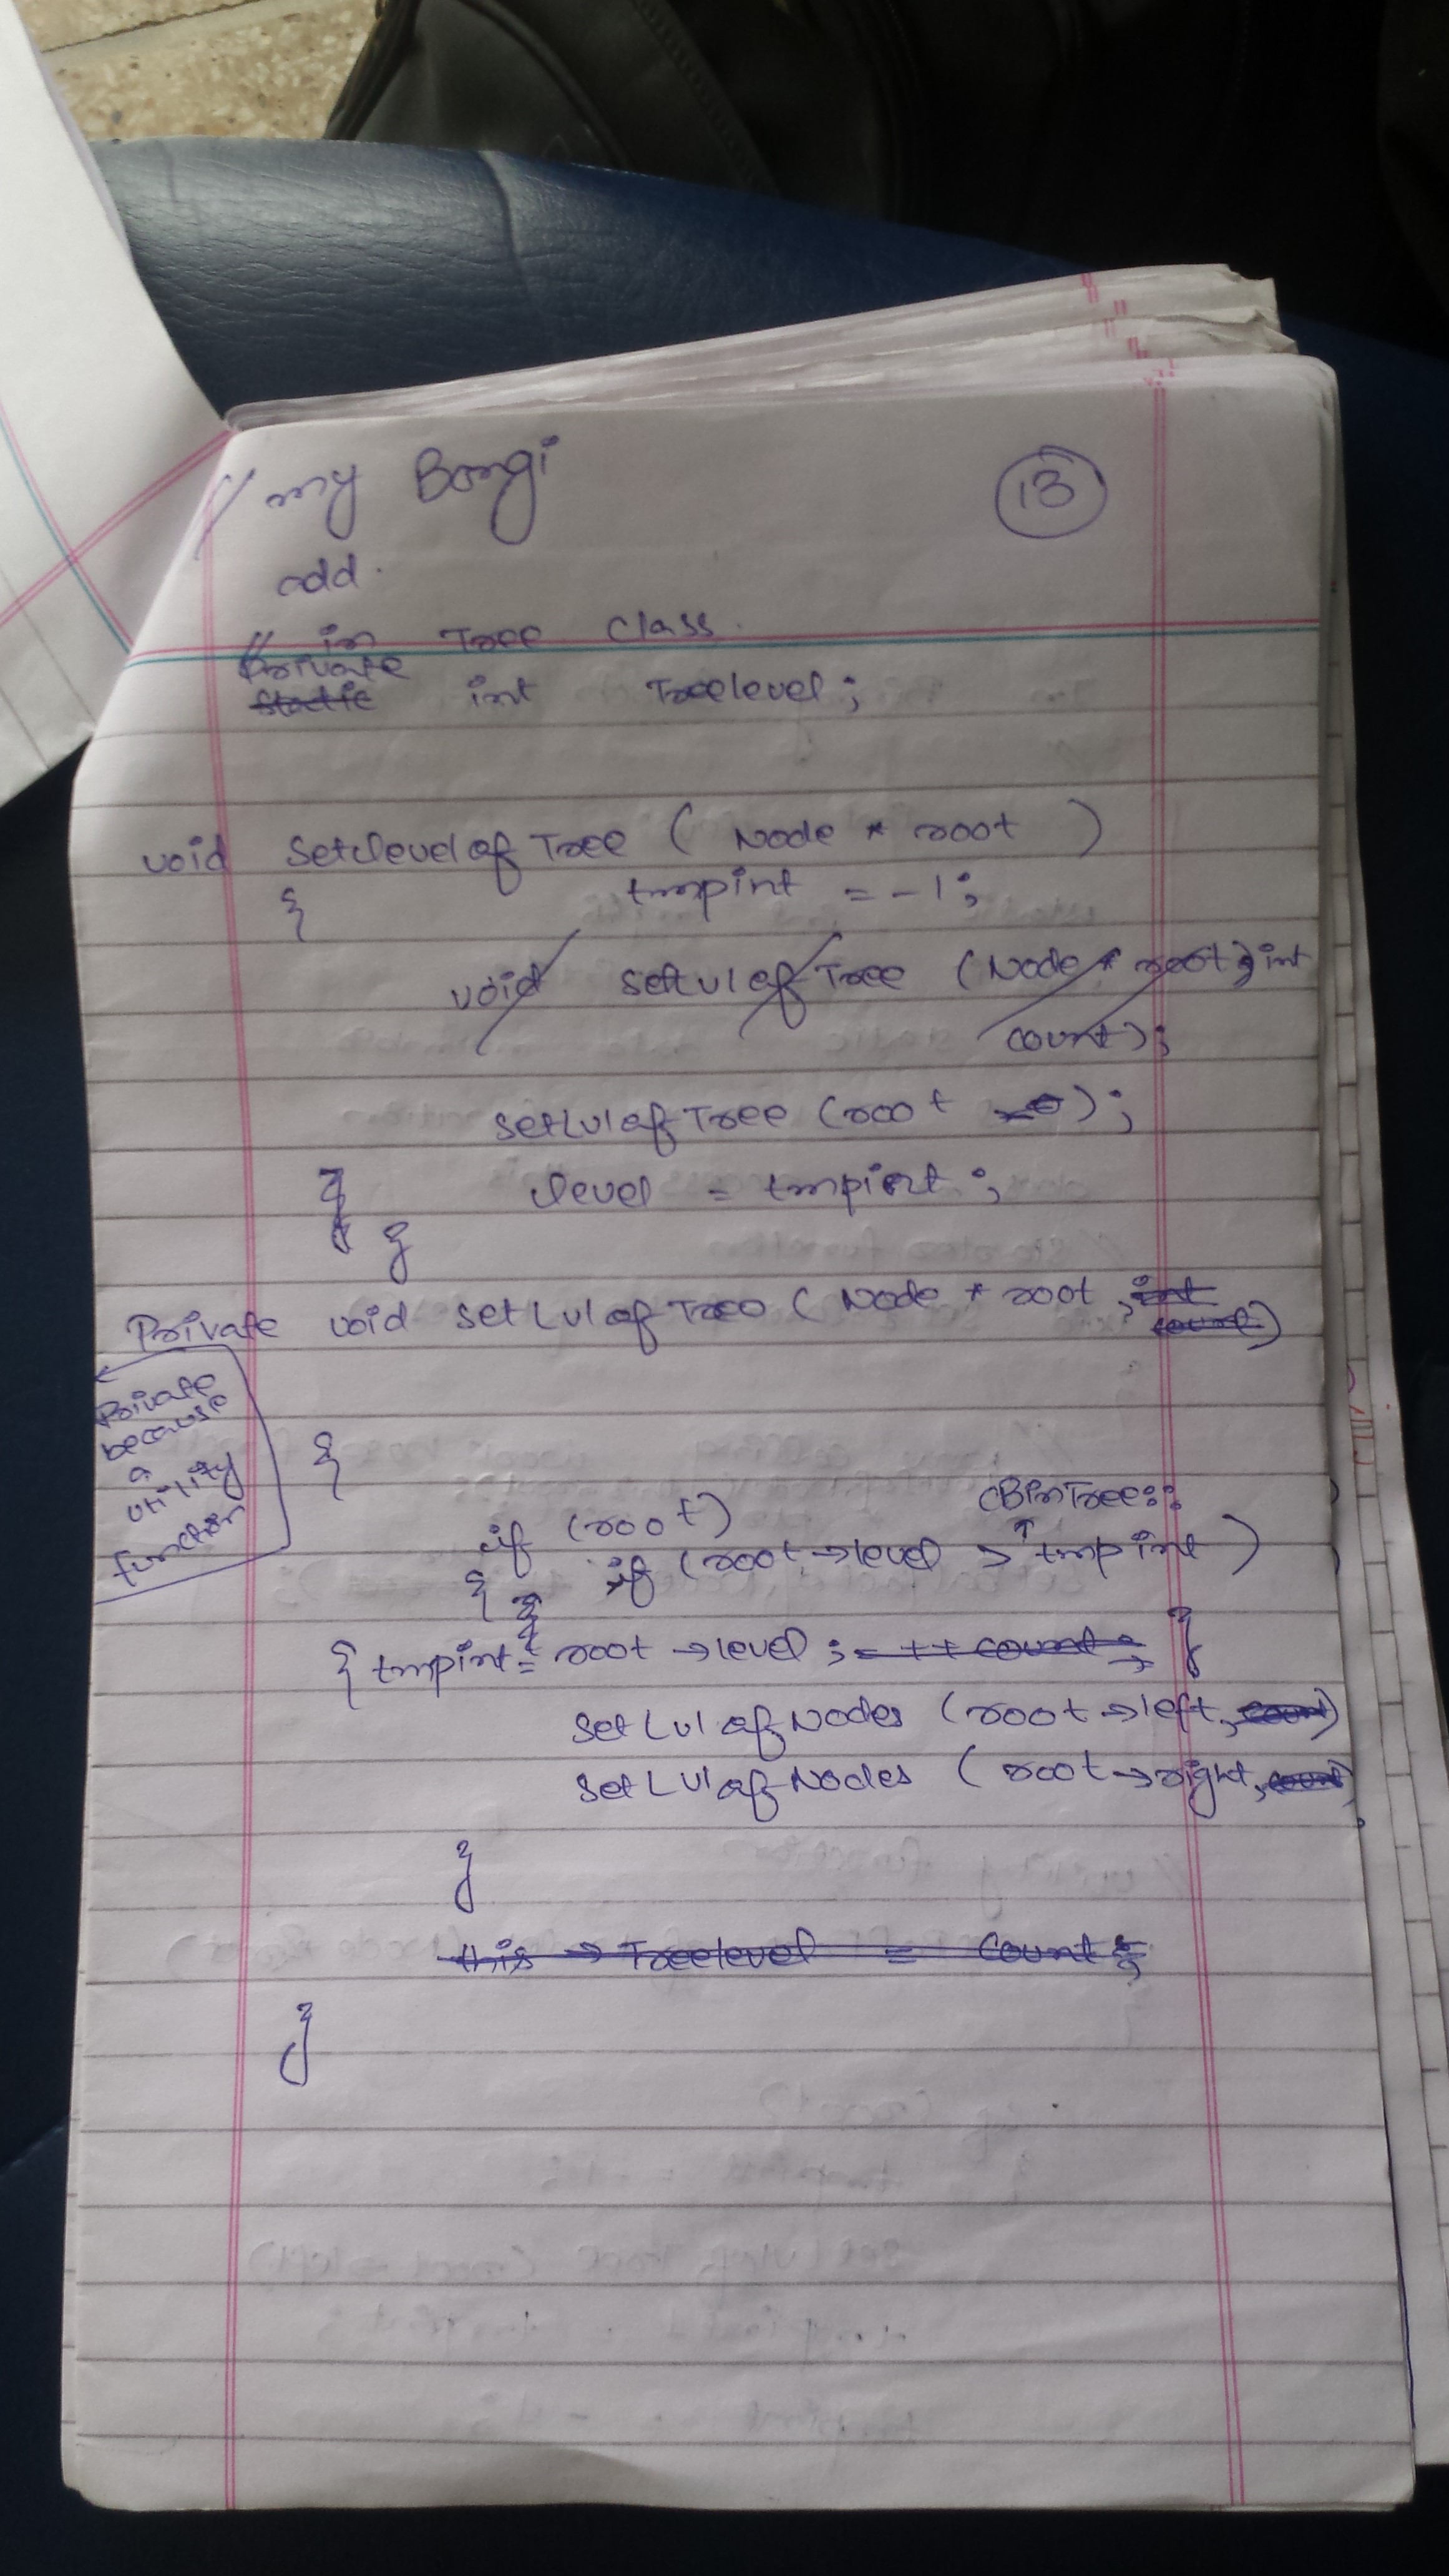 // my Bongi
13
add.
// in Tree Class.
Private
Static int Treelevel;
void SetlevelofTree ( Node * root )
{ tmpint = -1;
void SetLvlofTree (Node * root, int
count);
SetLvlofTree (root );
level = tmpint ;
}
Private void SetLvlofTree ( Node * root , int
count)
Private
because
a
utility
function
{
if (root) CBinTree::
{ if (root->level > tmpint )
{ tmpint = root ->level ; = ++ count ; }
SetLvlofNodes (root->left, count)
SetLvlofNodes ( root->right, count)
}
this -> Treelevel = Count ;
}